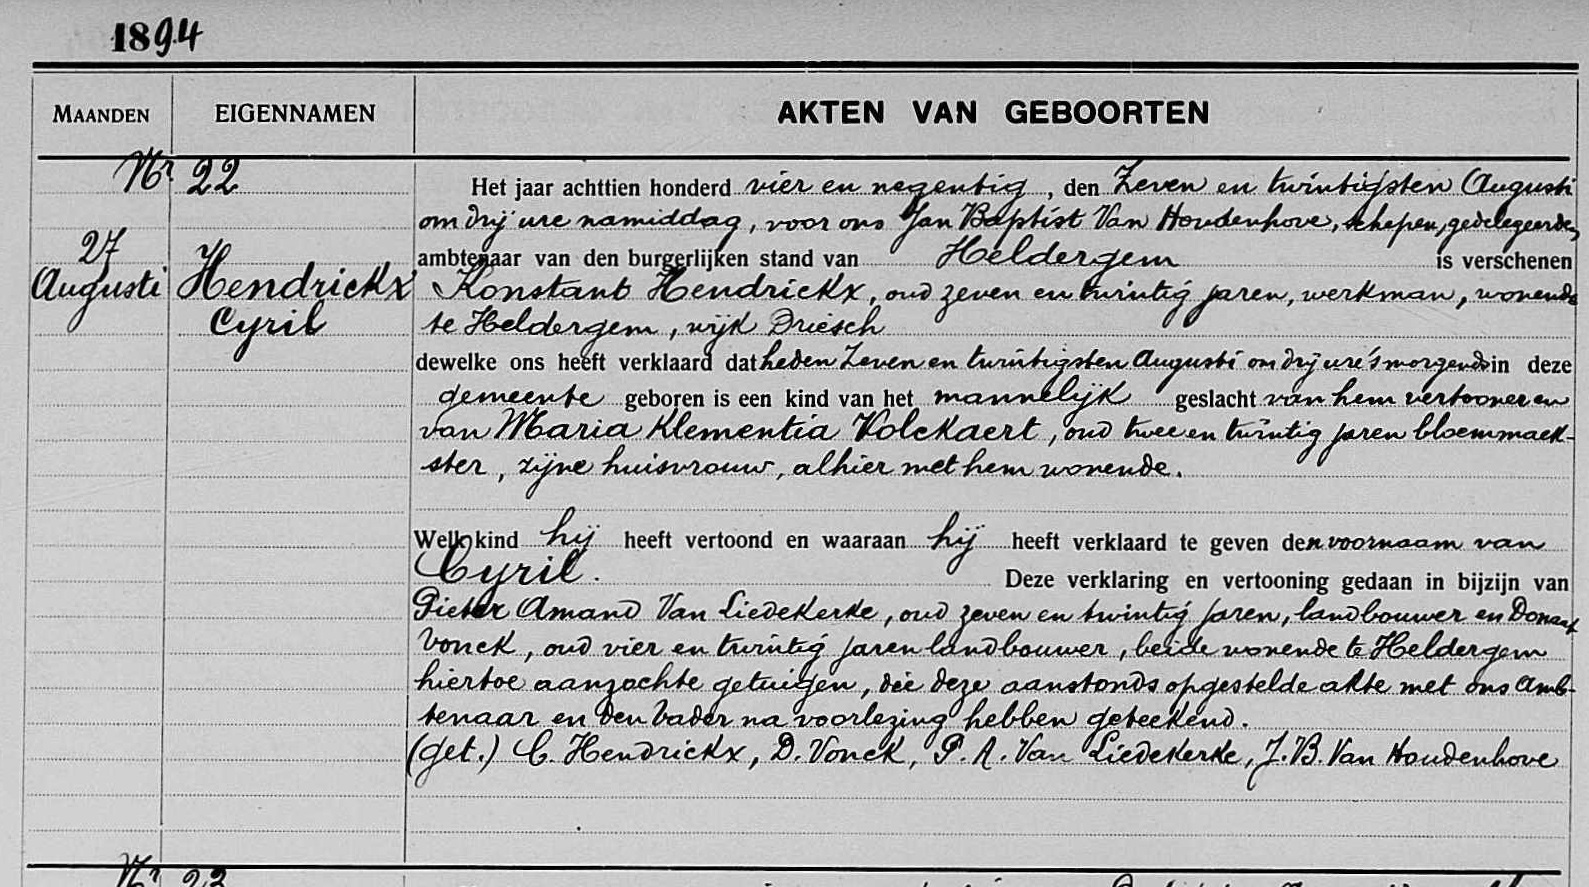 1894
MAANDEN EIGENNAMEN AKTEN VAN GEBOORTEN
Nr 22
27
Augusti
Hendrickx
Cyril
Het jaar achttien honderd vier en negentig, den Zeven en twintigsten Augusti
om drij ure namiddag, voor ons Jan Baptist Van Houdenhove, schepen, gedelegeerde,
ambtenaar van den burgerlijken stand van Heldergem is verschenen
Konstant Hendrickx, oud zeven en twintig jaren, werkman, wonende
te Heldergem, wijk Driesch
dewelke ons heeft verklaard dat heden Zeven en twintigsten Augusti om drij ure 's morgends in deze
gemeente geboren is een kind van het mannelijk geslacht van hem vertooner en
van Maria Klementia Volckaert, oud twee en twintig jaren bloemmaek-
ster, zijne huisvrouw, alhier met hem wonende.
Welk kind hij heeft vertoond en waaraan hij heeft verklaard te geven den voornaam van
Cyril. Deze verklaring en vertooning gedaan in bijzijn van
Pieter Amand Van Liedekerke, oud zeven en twintig jaren, landbouwer en Donaat
Vonck, oud vier en twintig jaren landbouwer, beide wonende te Heldergem
hiertoe aanzochte getuigen, die deze aanstonds opgestelde akte met ons Amb-
tenaar en den vader na voorlezing hebben geteekend.
(get.) C. Hendrickx, D. Vonck, P. A. Van Liedekerke, J. B. Van Houdenhove
Nr 23